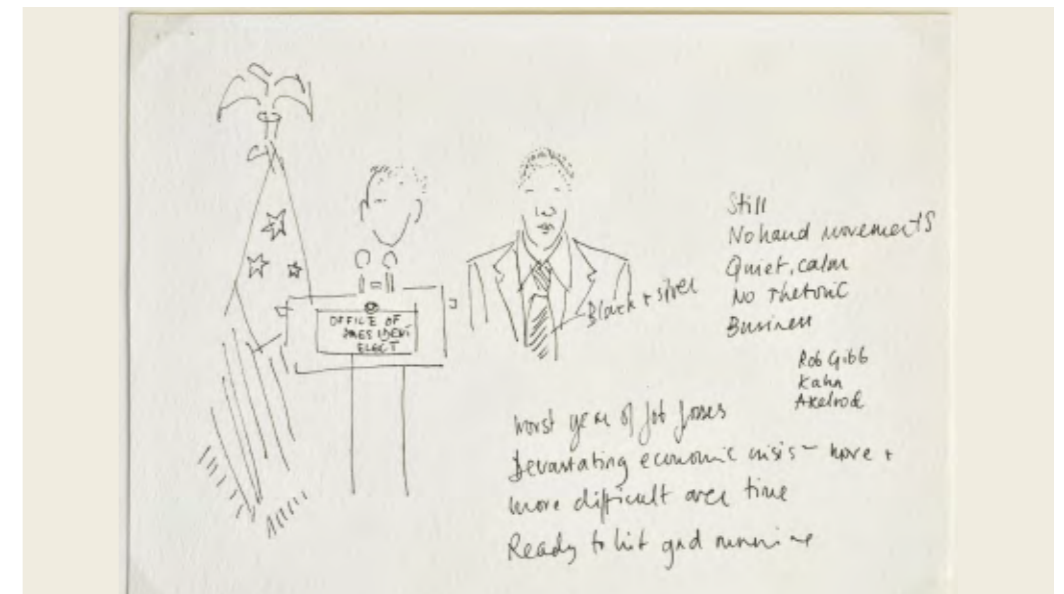 OFFICE OF
PRESIDENT
ELECT
Black + silver
Still
No hand movements
Quiet, calm
No rhetoric
Business
Rob Gibb
Kahn
Axelrod
Worst year of job losses
Devastating economic crisis - more +
more difficult over time
Ready to hit gnd running